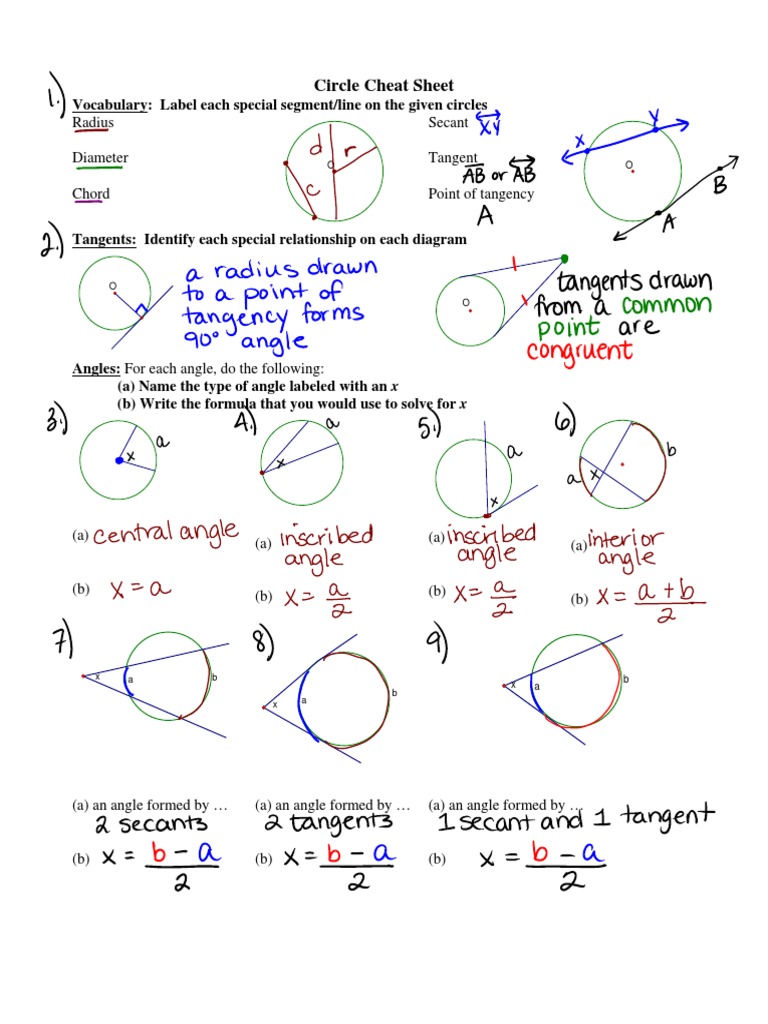 Circle Cheat Sheet
1.) Vocabulary: Label each special segment/line on the given circles
Radius
Diameter
Chord
d
r
O
c
Secant XY
Tangent
AB or AB
Point of tangency
A
X
Y
O
A
B
2.) Tangents: Identify each special relationship on each diagram
O
a radius drawn
to a point of
tangency forms
90° angle
O
tangents drawn
from a common
point are
congruent
Angles: For each angle, do the following:
(a) Name the type of angle labeled with an x
(b) Write the formula that you would use to solve for x
3.)
x
a
(a) central angle
(b) x = a
4.)
x
a
(a) inscribed
angle
(b) x = a
2
5.)
x
a
(a) inscribed
angle
(b) x = a
2
6.)
a
x
b
(a) interior
angle
(b) x = a + b
2
7.)
x
a
b
(a) an angle formed by …
2 secants
(b) x = b - a
2
8.)
x
a
b
(a) an angle formed by …
2 tangents
(b) x = b - a
2
9.)
x
a
b
(a) an angle formed by …
1 secant and 1 tangent
(b) x = b - a
2